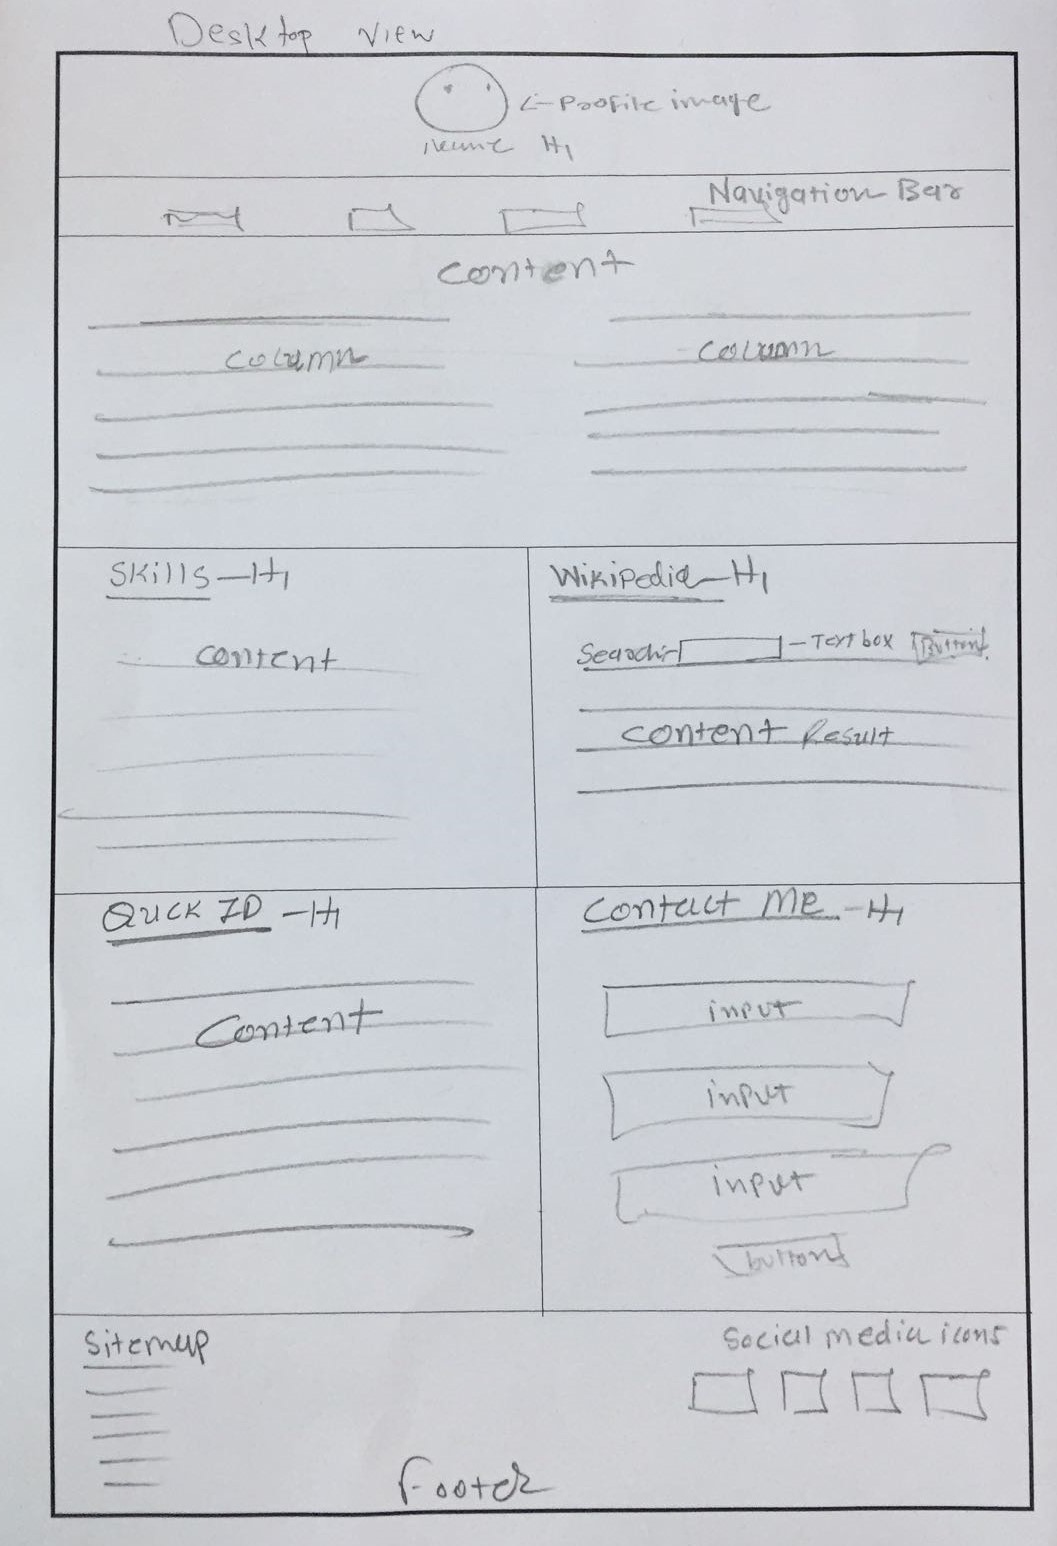 Desktop view
<- Profile image
Name H1
Navigation Bar
Content
Column
Column
Skills - H1
Content
Wikipedia - H1
Search - Text box Button
Content Result
Quck ID - H1
Content
Contact Me - H1
input
input
input
button
Sitemap
Social media icons
Footer